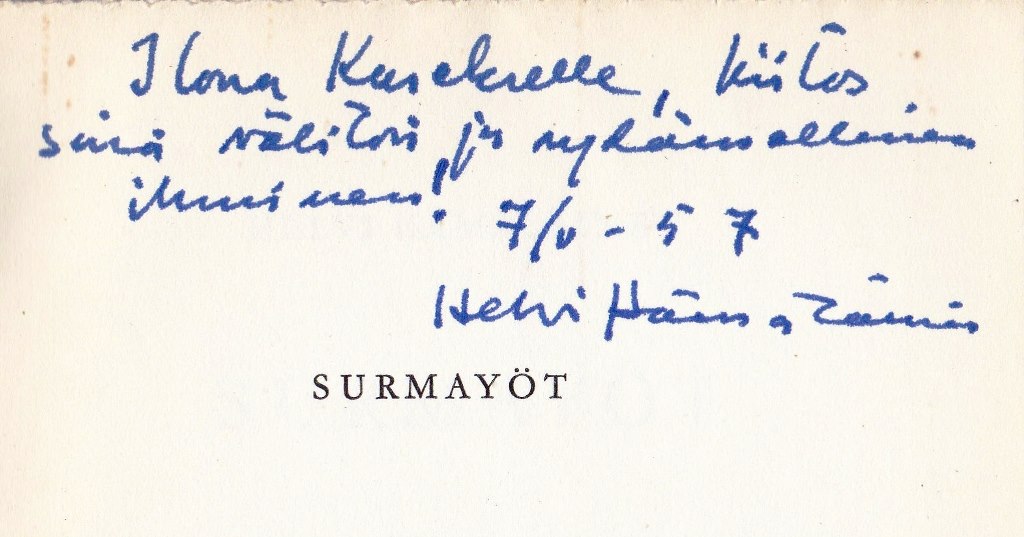 Ilona Kuselselle, kiitos
sinä välitön ja sydämellinen
ihminen!
7/V - 57
Helvi Hämäläinen
SURMAYÖT